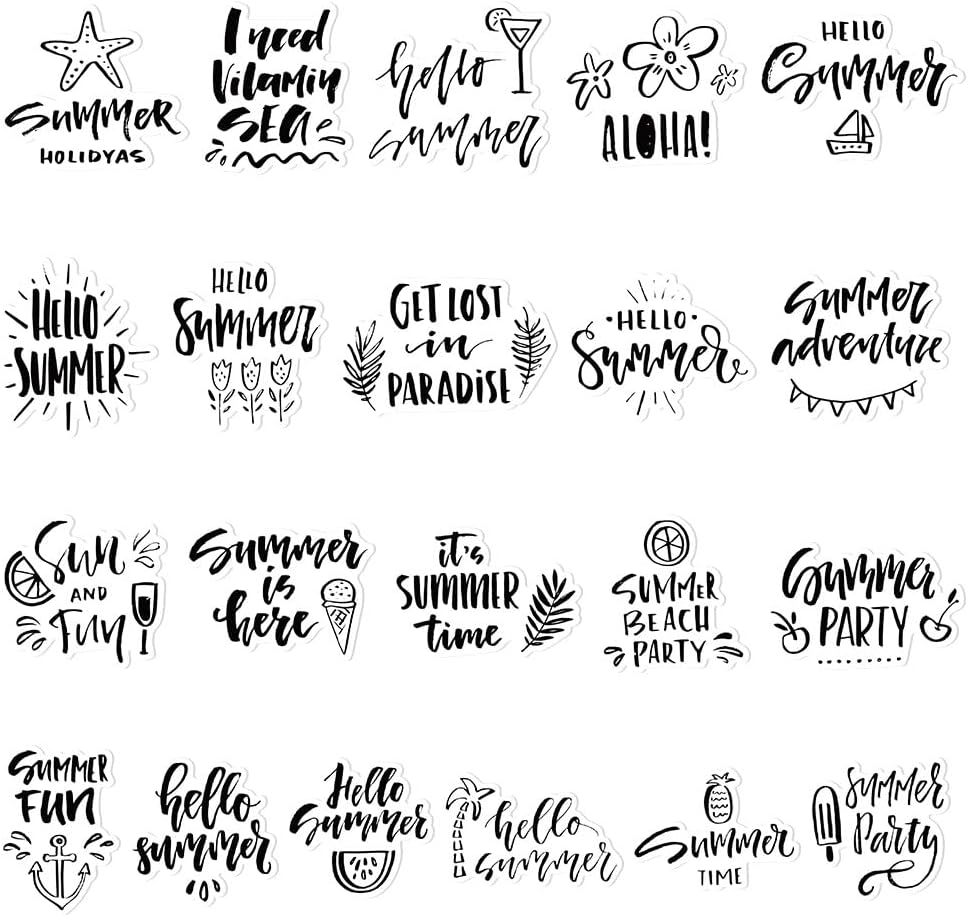 Summer
HOLIDYAS
I need
Vitamin
SEA
hello
summer
ALOHA!
HELLO
Summer
HELLO
SUMMER
HELLO
Summer
GET LOST
in
PARADISE
HELLO
Summer
Summer
adventure
Sun
AND
Fun
Summer
is
here
it's
SUMMER
time
SUMMER
BEACH
PARTY
Summer
PARTY
SUMMER
FUN
hello
summer
Hello
Summer
hello
summer
Summer
TIME
Summer
Party